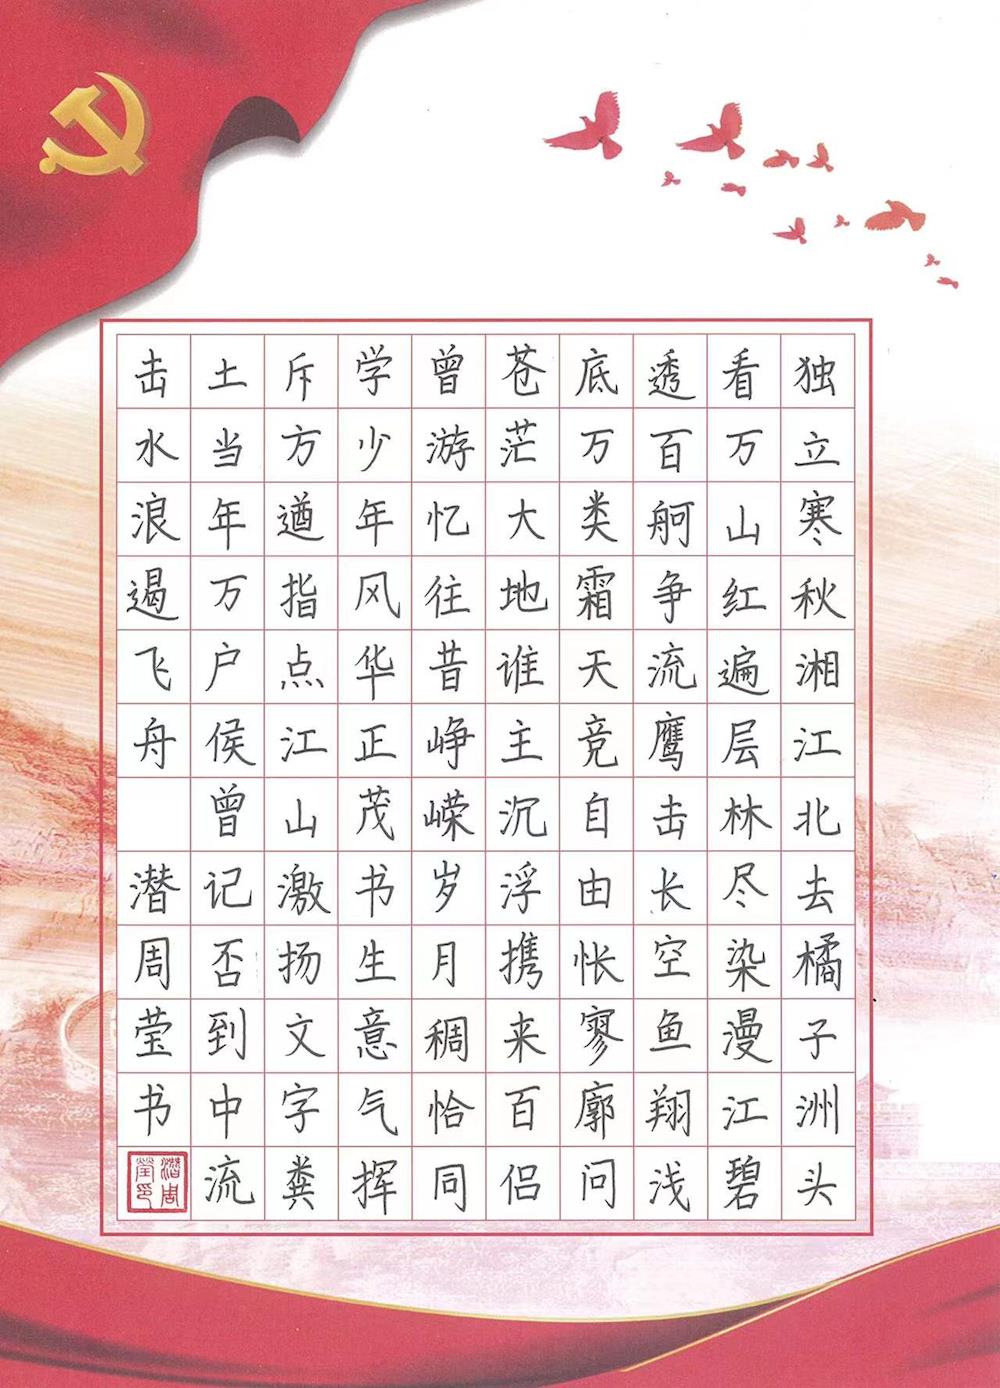 独立寒秋湘江北去橘子洲头
看万山红遍层林尽染漫江碧
透百舸争流鹰击长空鱼翔浅
底万类霜天竞自由怅寥廓问
苍茫大地谁主沉浮携来百侣
曾游忆往昔峥嵘岁月稠恰同
学少年风华正茂书生意气挥
斥方遒指点江山激扬文字粪
土当年万户侯曾记否到中流
击水浪遏飞舟 潜周莹书
潛周瑩印